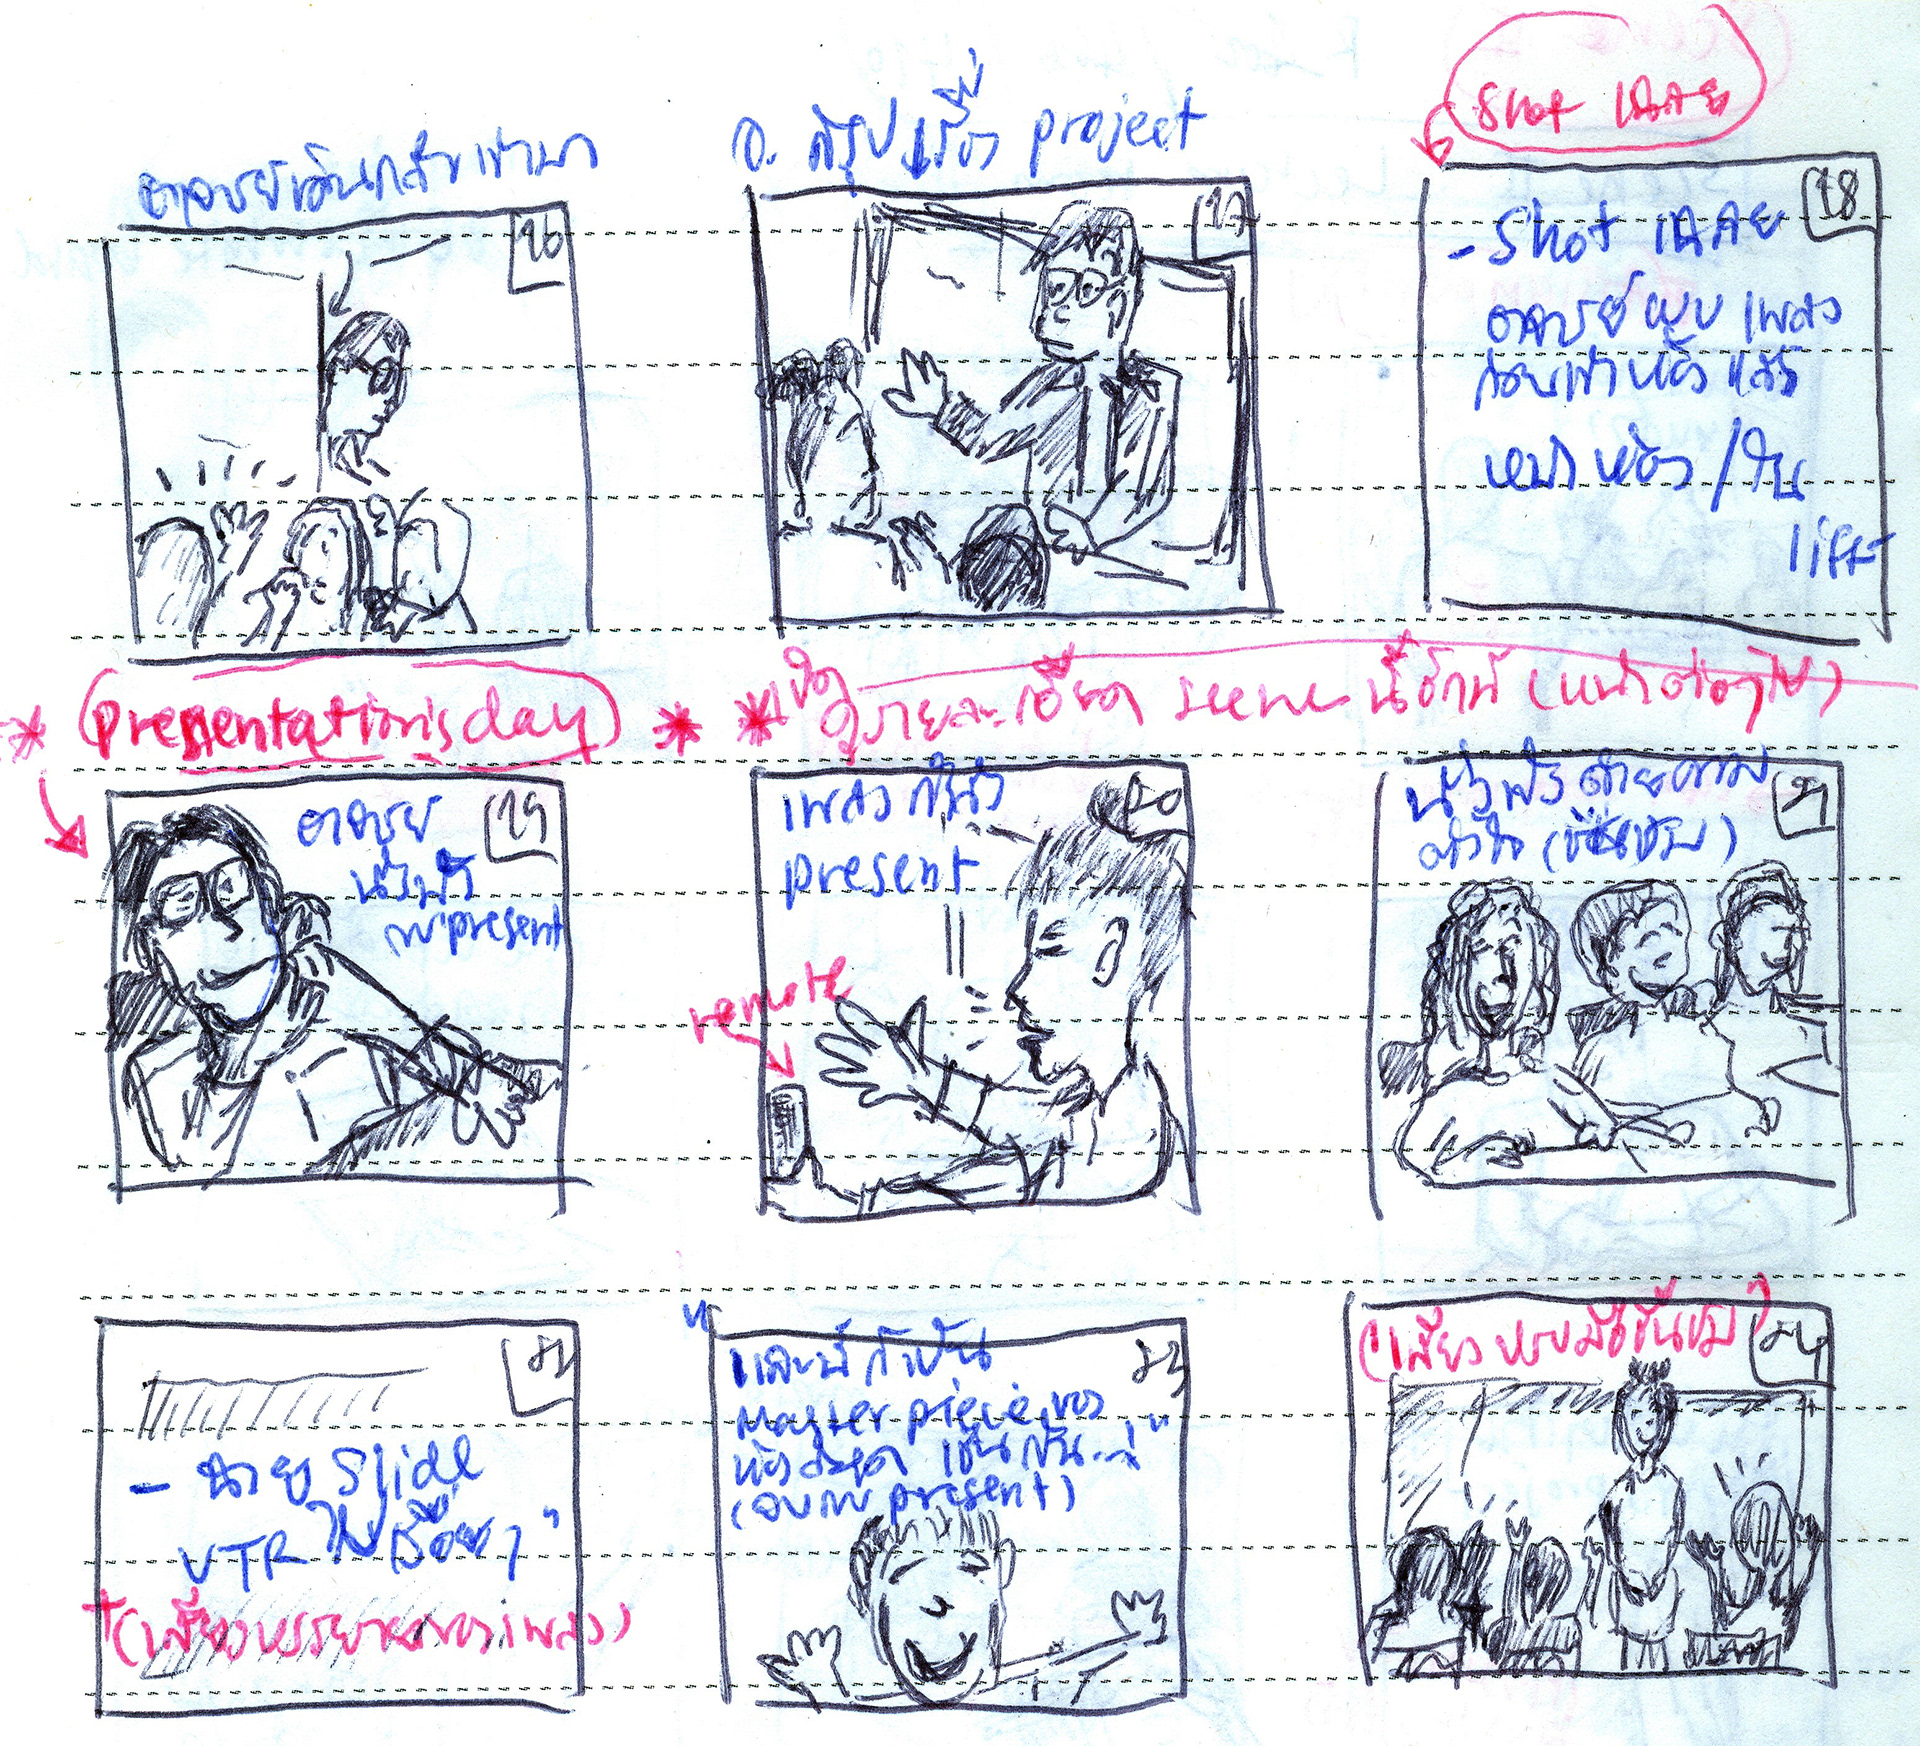 Shot เฉลย
อาจารย์เดินกลับเข้ามา
อ. สรุปเรื่อง project
16
17
18
- Shot เฉลย
อาจารย์พบเพลง
ก่อนเข้าห้องแล้ว
หน้าห้อง/ใน
lift
* presentation's day *
* ดูรายละเอียด scene นี้อีกที (หน้าต่อๆไป)
19
อาจารย์
นั่งฟัง
การ present
20
เพลงกำลัง
present
remote
21
นั่งฟังด้วยความ
ตั้งใจ (ชื่นชม)
22
- ฉาย Slide
VTR ไปเรื่อยๆ
+ (เสียงบรรยายของเพลง)
23
"และนี่ก็เป็น
Master piece ของ
เช่นกัน..."
(จบการ present)
24
(เสียงปรบมือชื่นชม)